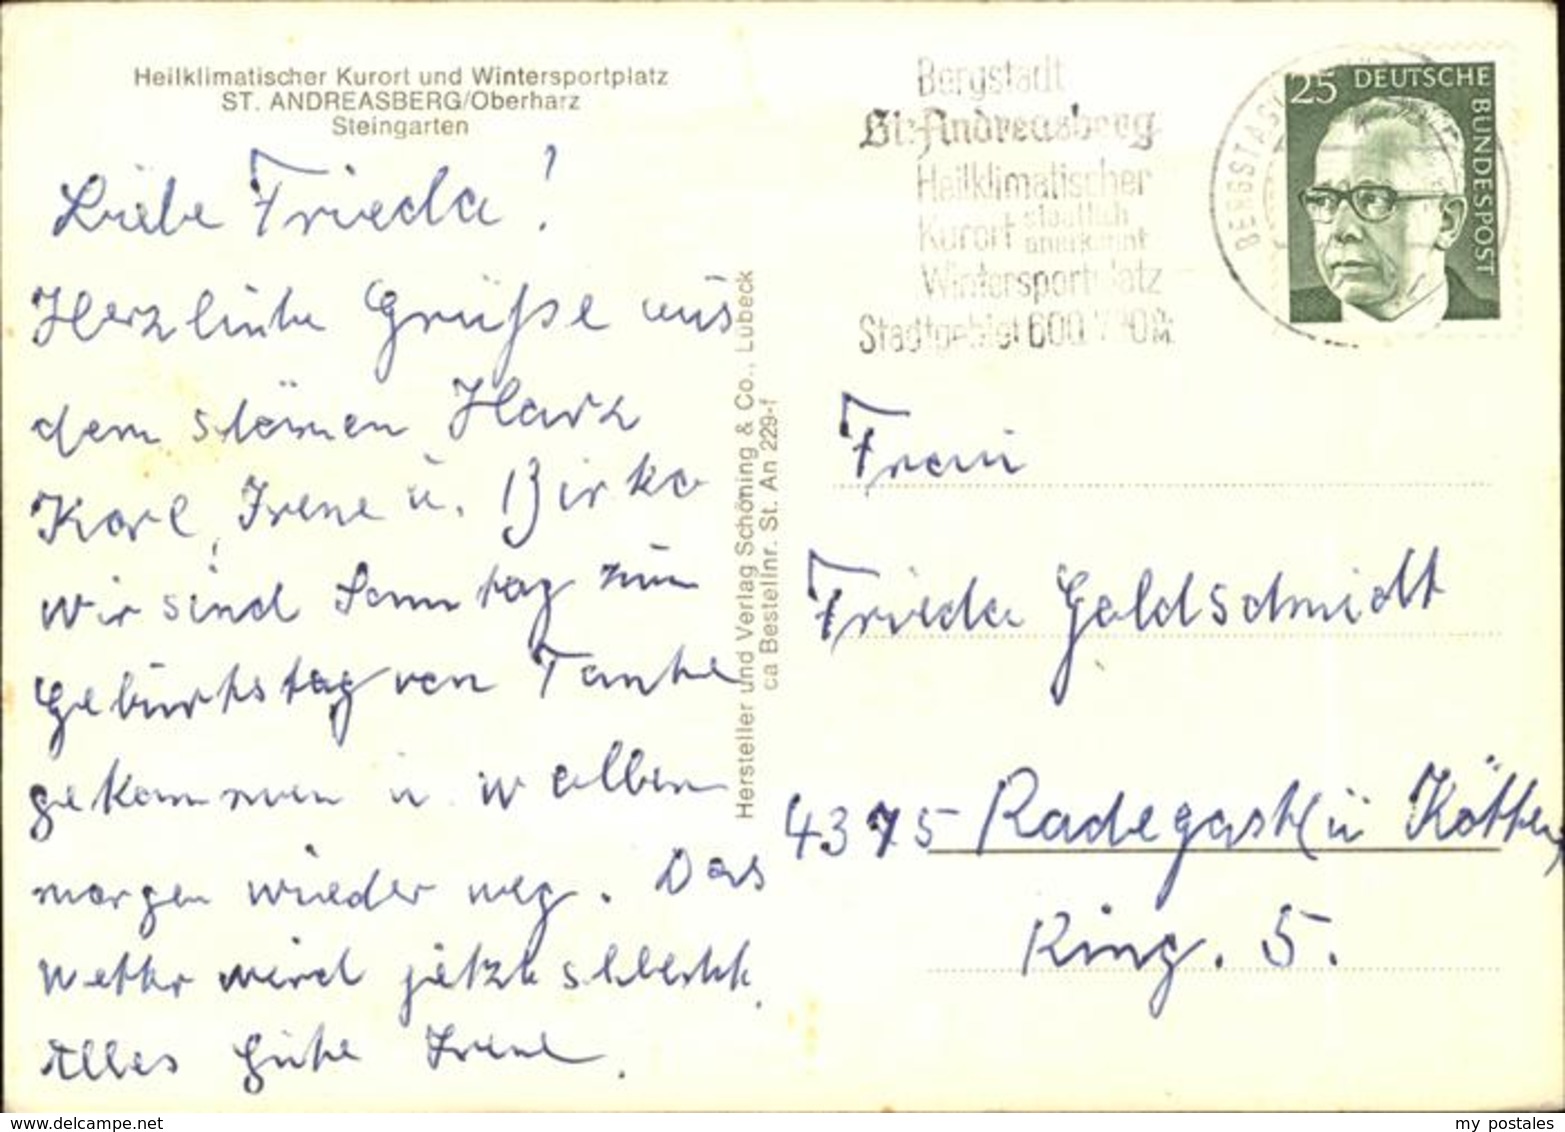 Heilklimatischer Kurort und Wintersportplatz
ST. ANDREASBERG/Oberharz
Steingarten
Liebe Frieda!
Herzliche Grüße aus
dem schönen Harz
Karl, Irene u. Birka
wir sind Sonntag zum
Geburtstag von Tante
gekommen u. wollen
morgen wieder weg. Das
Wetter wird jetzt schlecht.
Alles Gute Irene.
Hersteller und Verlag Schöning & Co., Lübeck
ca Bestellnr. St. An 229-f
Bergstadt
St. Andreasberg
Heilklimatischer
Kurort staatlich
anerkannt
Wintersportplatz
Stadtgebiet 600
BERGSTADT
25 DEUTSCHE
BUNDESPOST
Frau
Frieda Goldschmidt
4375 Radegast (ü Köthen)
Ring. 5.
my postales